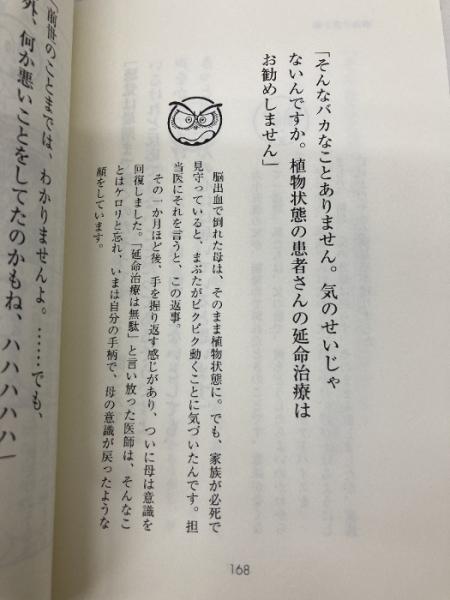 「そんなバカなことありません。気のせいじゃ
ないんですか。植物状態の患者さんの延命治療は
お勧めしません」
脳出血で倒れた母は、そのまま植物状態に。でも、家族が必死で
見守っていると、まぶたがピクピク動くことに気づいたんです。担
当医にそれを言うと、この返事。
その一か月ほど後、手を握り返す感じがあり、ついに母は意識を
回復しました。「延命治療は無駄」と言い放った医師は、そんなこ
とはケロリと忘れ、いまは自分の手柄で、母の意識が戻ったような
顔をしています。
168
「前世のことまでは、わかりませんよ。……でも、
外、何か悪いことをしてたのかもね、ハハハハハ」